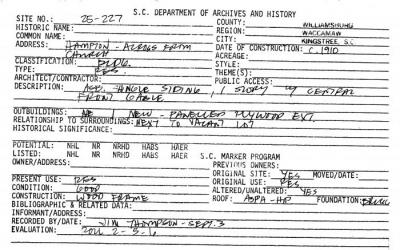 S.C. DEPARTMENT OF ARCHIVES AND HISTORY
SITE NO.: 25-227
COUNTY: WILLIAMSBURG
HISTORIC NAME:
REGION: WACCAMAW
COMMON NAME:
CITY: KINGSTREE, S.C.
ADDRESS: HAMPTON - ACROSS FROM CHURCH
DATE OF CONSTRUCTION: C. 1910
ACREAGE:
CLASSIFICATION: BLDG.
STYLE:
TYPE: RES.
THEME(S):
ARCHITECT/CONTRACTOR:
PUBLIC ACCESS:
DESCRIPTION: SHINGLE SIDING, 1 STORY W/ CENTRAL
FRONT GABLE.
OUTBUILDINGS: NEW - PANELLED PLYWOOD EXT.
RELATIONSHIP TO SURROUNDINGS: NEXT TO VACANT LOT
HISTORICAL SIGNIFICANCE:
POTENTIAL: NHL NR NRHD HABS HAER
LISTED: NHL NR NRHD HABS HAER S.C. MARKER PROGRAM
OWNER/ADDRESS:
PREVIOUS OWNERS:
ORIGINAL SITE: YES MOVED/DATE:
PRESENT USE: RES
ORIGINAL USE: RES
CONDITION: GOOD
ALTERED/UNALTERED: YES
CONSTRUCTION: WOOD FRAME
ROOF: ASPH-HIP FOUNDATION: BRICK
BIBLIOGRAPHIC & RELATED DATA:
INFORMANT/ADDRESS:
RECORDED BY/DATE: JIM THOMPSON - SEPT. 3
EVALUATION: 2-5-6